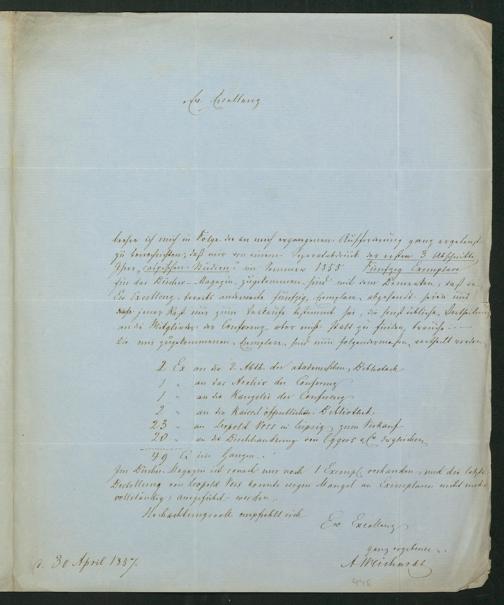 Ew Excellenz
beehre ich mich in Folge der an mich ergangenen Aufforderung ganz ergebenst
zu benachrichtigen, daß mir von einem Separatabdruck der ersten 3 Abschnitte
Ihrer, Studien, im Sommer 1855 Fünfzig Exemplare
für das Bücher-Magazin zugekommen sind mit dem Bemerken, daß an
Ew Excellenz bereits anderweite fünfzig Exemplare abgesandt seien und
nur zum Verkaufe bestimmt sei, die sonst übliche Vertheilung
an die Mitglieder der Conferenz aber nicht statt zu finden brauche.
Die mir zugekommenen Exemplare sind nun folgendermaßen vertheilt worden
2 Ex an die 2. Abth. der akademischen Bibliothek
1 " an das Archiv der Conferenz
1 " an die Kanzelei der Conferenz
2 " an die Kaiserl öffentliche Bibliothek.
23 " an Leopold Voss in Leipzig zum Verkauf
20 " an die Buchhandlung von Eggers & Co desgleichen
49 Ex im Ganzen.
Im Bücher-Magazin ist sonach nur noch 1 Exempl. vorhanden, und die letzte
Bestellung von Leopold Voss konnte wegen Mangel an Exemplaren nicht mehr
vollständig ausgeführt werden.
Hochachtungsvoll empfiehlt sich
Ew Excellenz
ganz ergebener
30 April 1857.